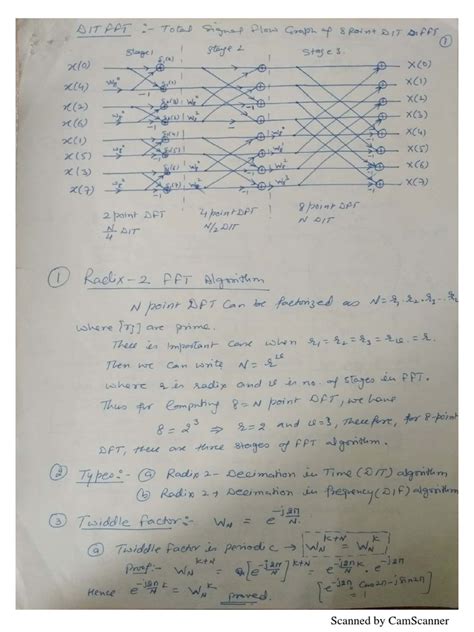 DIT FFT :- Total Signal Flow Graph of 8 point DIT DIFFT
①
Stage 1 Stage 2 Stage 3
x(0) X(0)
x(4) X(1)
x(2) X(2)
x(6) X(3)
x(1) X(4)
x(5) X(5)
x(3) X(6)
x(7) X(7)
2 point DFT 4 point DFT 8 point DFT
N/4 DIT N/2 DIT N DIT
① Radix-2 FFT Algorithm
N point DFT can be factorized as N = r₁ r₂ r₃ ...
where [rj] are prime.
There is important case when r₁ = r₂ = r₃ = rᵥ = r.
Then we can write N = r^v
where r is radix and v is no. of stages in FFT.
Thus for computing 8 = N point DFT, we have
8 = 2³ ⇒ r = 2 and v = 3, Therefore, for 8-point
DFT, there are three stages of FFT algorithm.
② Types:- ⓐ Radix 2 - Decimation in Time (DIT) algorithm
ⓑ Radix 2 → Decimation in frequency (DIF) algorithm
③ Twiddle Factor:- W_N = e^(-j2π/N)
ⓐ Twiddle Factor is periodic → W_N^(K+N) = W_N^K
Proof:- W_N^(K+N) = [e^(-j2π/N)]^(K+N) = e^(-j2πK/N) · e^(-j2π)
Hence e^(-j2πK/N) = W_N^K proved. [e^(-j2π) = cos2π - jsin2π = 1]
Scanned by CamScanner